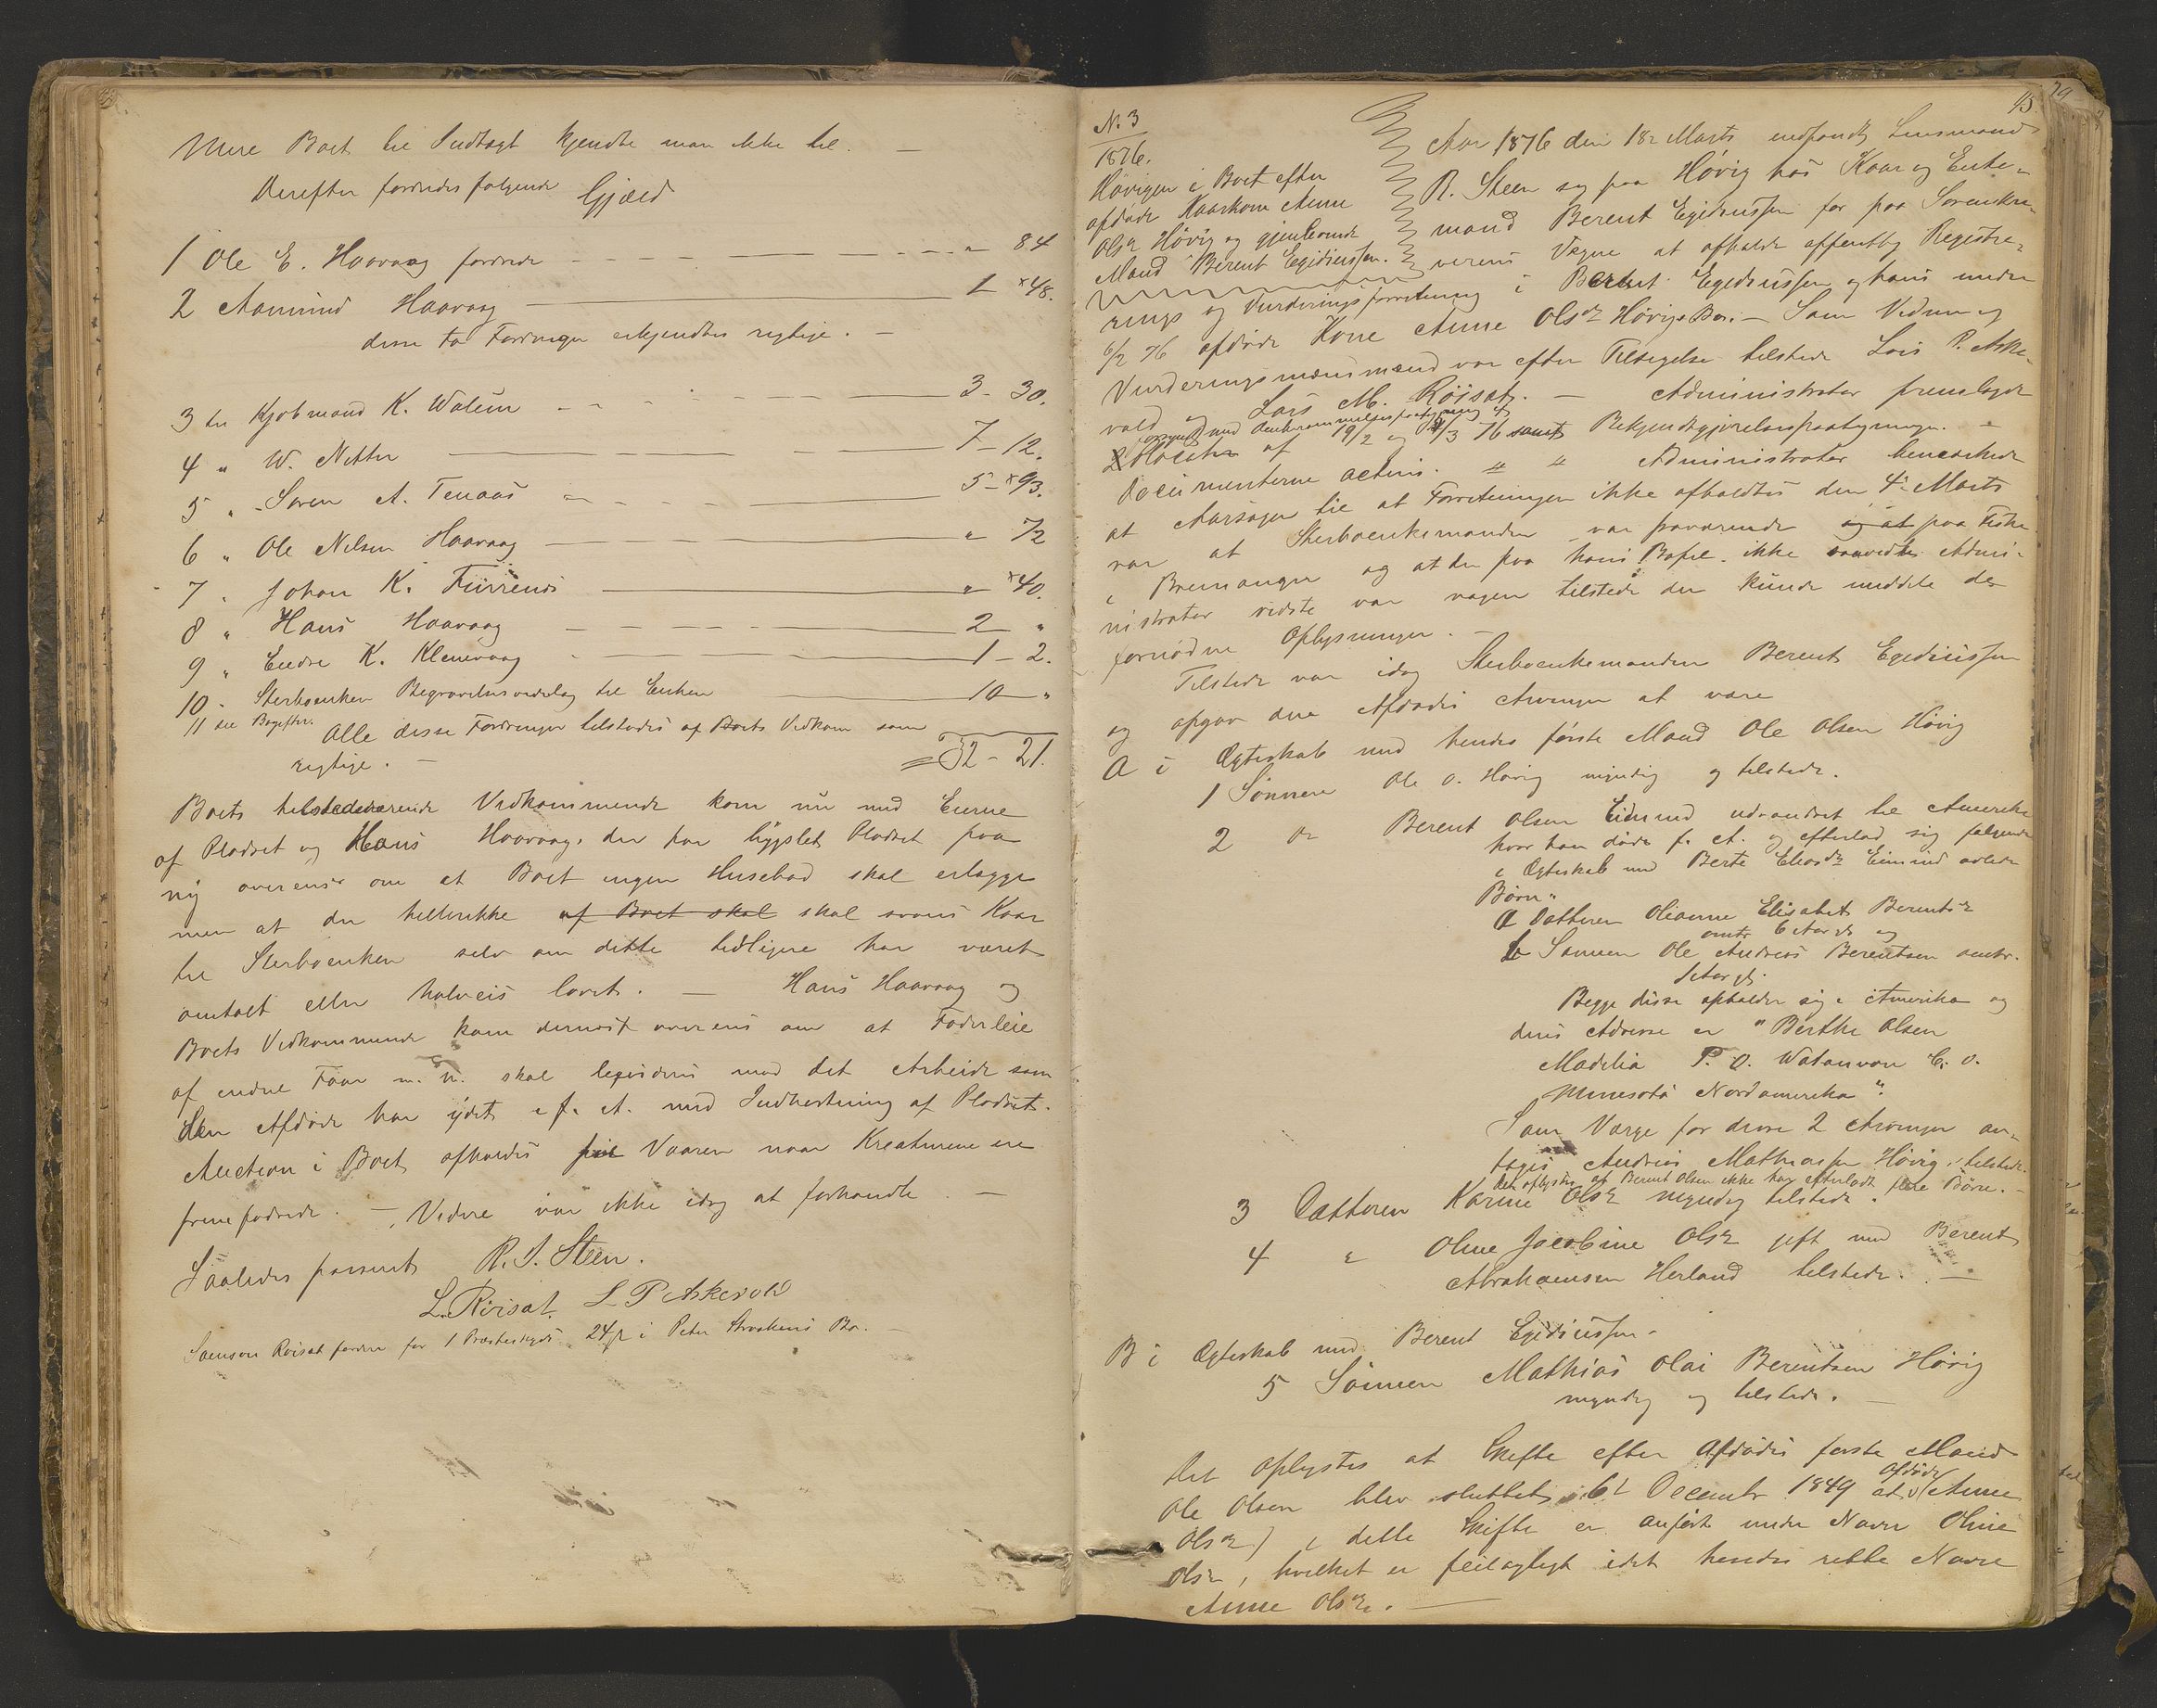 Mere Boet til Indtægt kjendte man ikke til. —
Derefter fordredes følgende Gjæld
1 Ole E. Haavaag fordrede — " 84
2 Aamund Haavaag — 1 48.
disse to Fordringer erkjendtes rigtige. —
3 til Kjøbmand K. Walum — 3 - 30.
4 " W. Nitter — 7 - 12.
5 " Søren A. Tenaas — 5 - 93.
6 " Ole Nilsen Haavaag — " 72
7 " Johan K. Furrenes — " 40.
8 " Hans Haavaag — 2 "
9 " Endre K. Klenevaag — 1 - 2.
10 " Sterboenken Begravelsesvederlag til Enken — 10 "
11 see Bagefter.
Alle disse Fordringer tilstodes af Boets Vedkom som
rigtige. — 32 - 21.
Boets tilstedeværende Vedkommende kom nu med Eierne
af Pladset og Hans Haavaag, der har bygslet Pladset paa
ny overens om at Boet ingen Husebod skal erlægge
men at der hellerikke af Boet skal skal svares Kaar
til Sterboenken selv om dette tidligere har været
omtalt eller halveis lovet. — Hans Haavaag og
Boets Vedkommende kom dernæst overens om at Foderleie
af endel Faar m. m. skal leqvideres mod det Arbeide som
den Afdøde har ydet i f. A. med Indhøstning af Pladset.
Auction i Boet afholdes til Vaaren naar Kreaturene ere
fremfodrede. — Videre var ikke idag at forhandle. —
Saaledes passeret R. S. Steen.
L. Röisat. L P Askevold
Samson Röisat fordrer for 1 24 i Peter Bo. —
15. 79
N. 3
1876.
Høvigen i Boet efter
afdøde Kaarkone Anne
Olsdr Høvig og gjenlevende
Mand Berent Egidiussen.
Aar 1876 den 18de Marts indfandt Lensmand
R. Steen sig paa Høvig hos Kaar og Enke-
mand Berent Egidiussen for paa Sorenskri-
verens Vegne at afholde offentlig Registre-
rings og Vurderingsforretning i Berent Egediussen og hans under
6/2 76 afdøde Kone Anne Olsdr Høvigs Bo. — Som Vidner og
Vurderingsmænd var efter Tilsigelse tilstede Lars P. Aske-
vold og Lars M. Röisat. — Administrator fremlagde
forsynet med
2 Placater af 19/2 og 8/3 76 samt Bekjendtgjørelsespaategninger. —
Documenterne acteris. " " Administrator bemærkede
at Aarsagen til at Forretningen ikke afholdtes den 4de Marts
var at Sterboenkemanden var fraværende sig at paa Fiske
i Bremanger og at der paa hans Bopæl ikke saavidt Admi-
nistrator vidste var nogen tilstede der kunde meddele de
fornødne Oplysninger. —
Tilstede var idag Sterboenkemanden Berent Egediussen
og opgav den Afdødes Arvinger at være
A i Ægteskab med hendes første Mand Ole Olsen Høvig
1 Sønnen Ole O. Høvig myndig og tilstede.
2 Do Berent Olsen Eimind udvandret til Amerika
hvor han døde f. A. og efterlod sig følgende
i Ægteskab med Berte Eliasdr Eimind avlede
Børn"
a Datteren Olianne Elisabet Berentsdr
omtr 6 Aar gl og
b Sønnen Ole Andreas Berentsen omtr.
Aar gl.
Begge disse opholder sig i Amerika og
deres Adresse er "Berthe Olsen
Madelia P. O. Watonvan C. O.
Minesota Nordamerika".
Som Værge for disse 2 Arvinger an-
tages Andreas Mathiassen Høvig, tilstede.
Det oplystes at Berent Olsen ikke har efterladt flere Børn. —
3 Datteren Karine Olsdr myndig tilstede.
4 " Oline Jacobine Olsdr gift med Berent
Abrahamsen Herland tilstede. —
B i Ægteskab med Berent Egidiussen.
5 Sønnen Mathias Olai Berentsen Høvig
myndig og tilstede. —
Det oplystes at Skifte efter Afdødes første Mand
Ole Olsen blev sluttet 6te December 1849 at Afdøde (Anne
Olsdr) i dette Skifte er anført under Navn Oline
Olsdr, hvilket er feilagtigt idet hendes rette Navn
Anne Olsdr. —